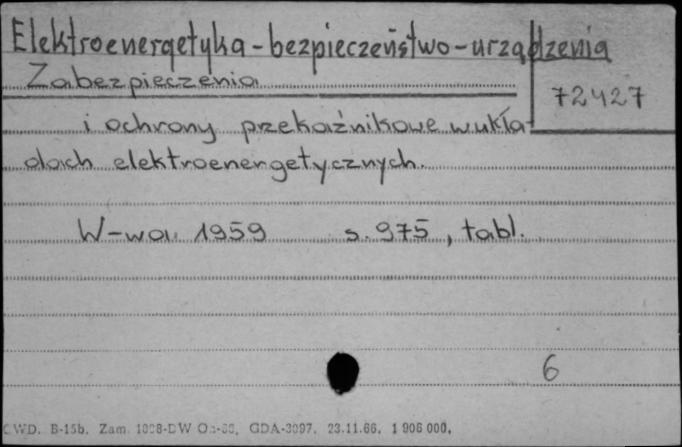 Elektroenergetyka - bezpieczeństwo - urządzenia
Zabezpieczenia
72427
i ochrony przekaźnikowe w ukła-
dach elektroenergetycznych.
W-wa. 1959 s. 975, tabl.
6
CWD. B-15b. Zam. GDA-3097. 23.11.66. 1 906 000.